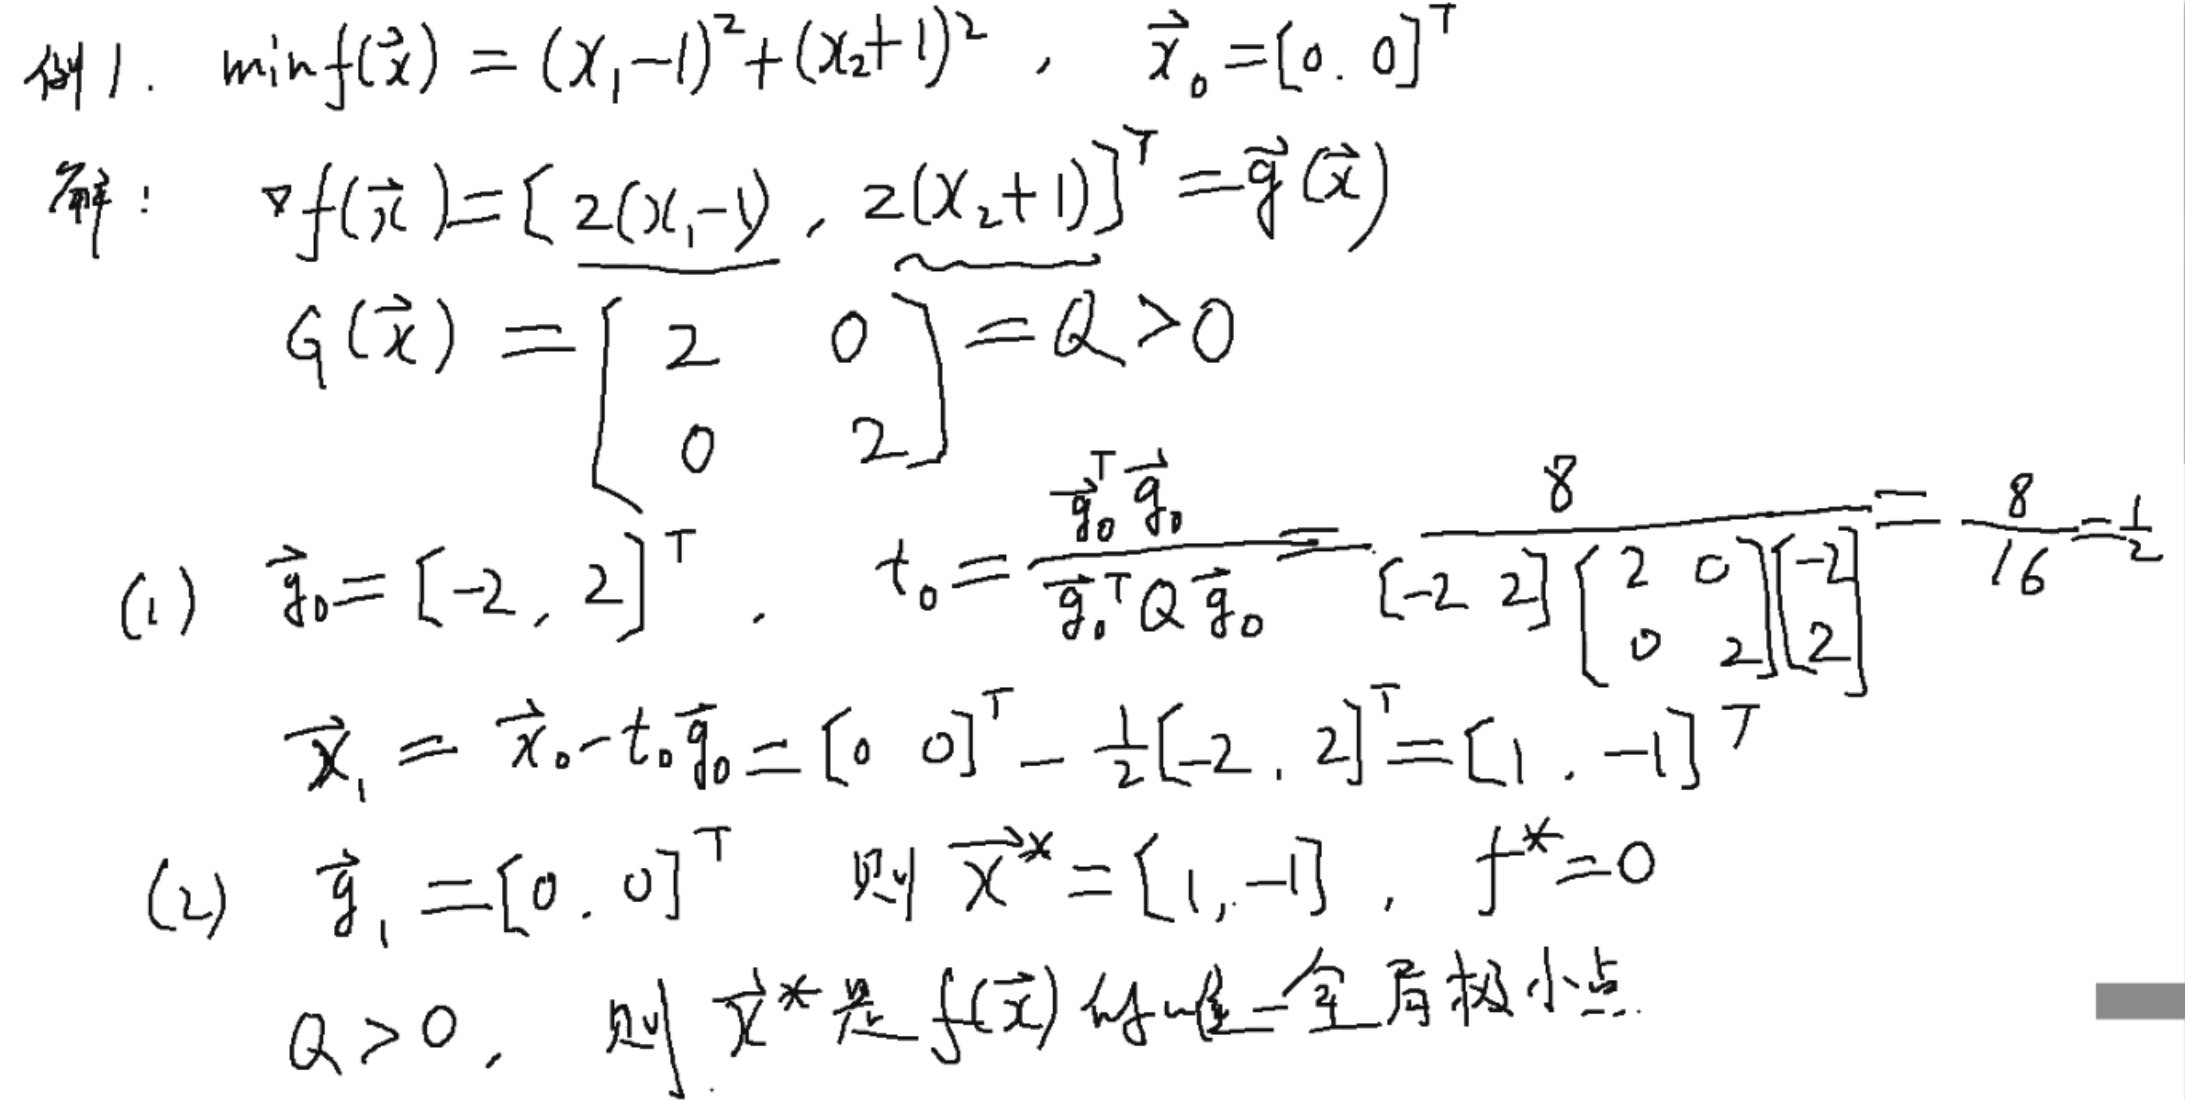 例1. min f(x⃗) = (x₁-1)²+(x₂+1)² , x⃗₀=[0. 0]ᵀ
解: ▽f(x⃗)=[2(x₁-1), 2(x₂+1)]ᵀ=g⃗(x⃗)
G(x⃗) = [2 0; 0 2] = Q > 0
(1) g⃗₀=[-2, 2]ᵀ, t₀ = g⃗₀ᵀg⃗₀ / g⃗₀ᵀQg⃗₀ = 8 / [-2 2][2 0; 0 2][-2; 2] = 8/16 = 1/2
x⃗₁ = x⃗₀-t₀g⃗₀=[0 0]ᵀ - 1/2[-2, 2]ᵀ=[1, -1]ᵀ
(2) g⃗₁=[0. 0]ᵀ 则 x⃗*=[1,-1], f*=0
Q>0, 则 x⃗*是 f(x⃗) 的唯一全局极小点.